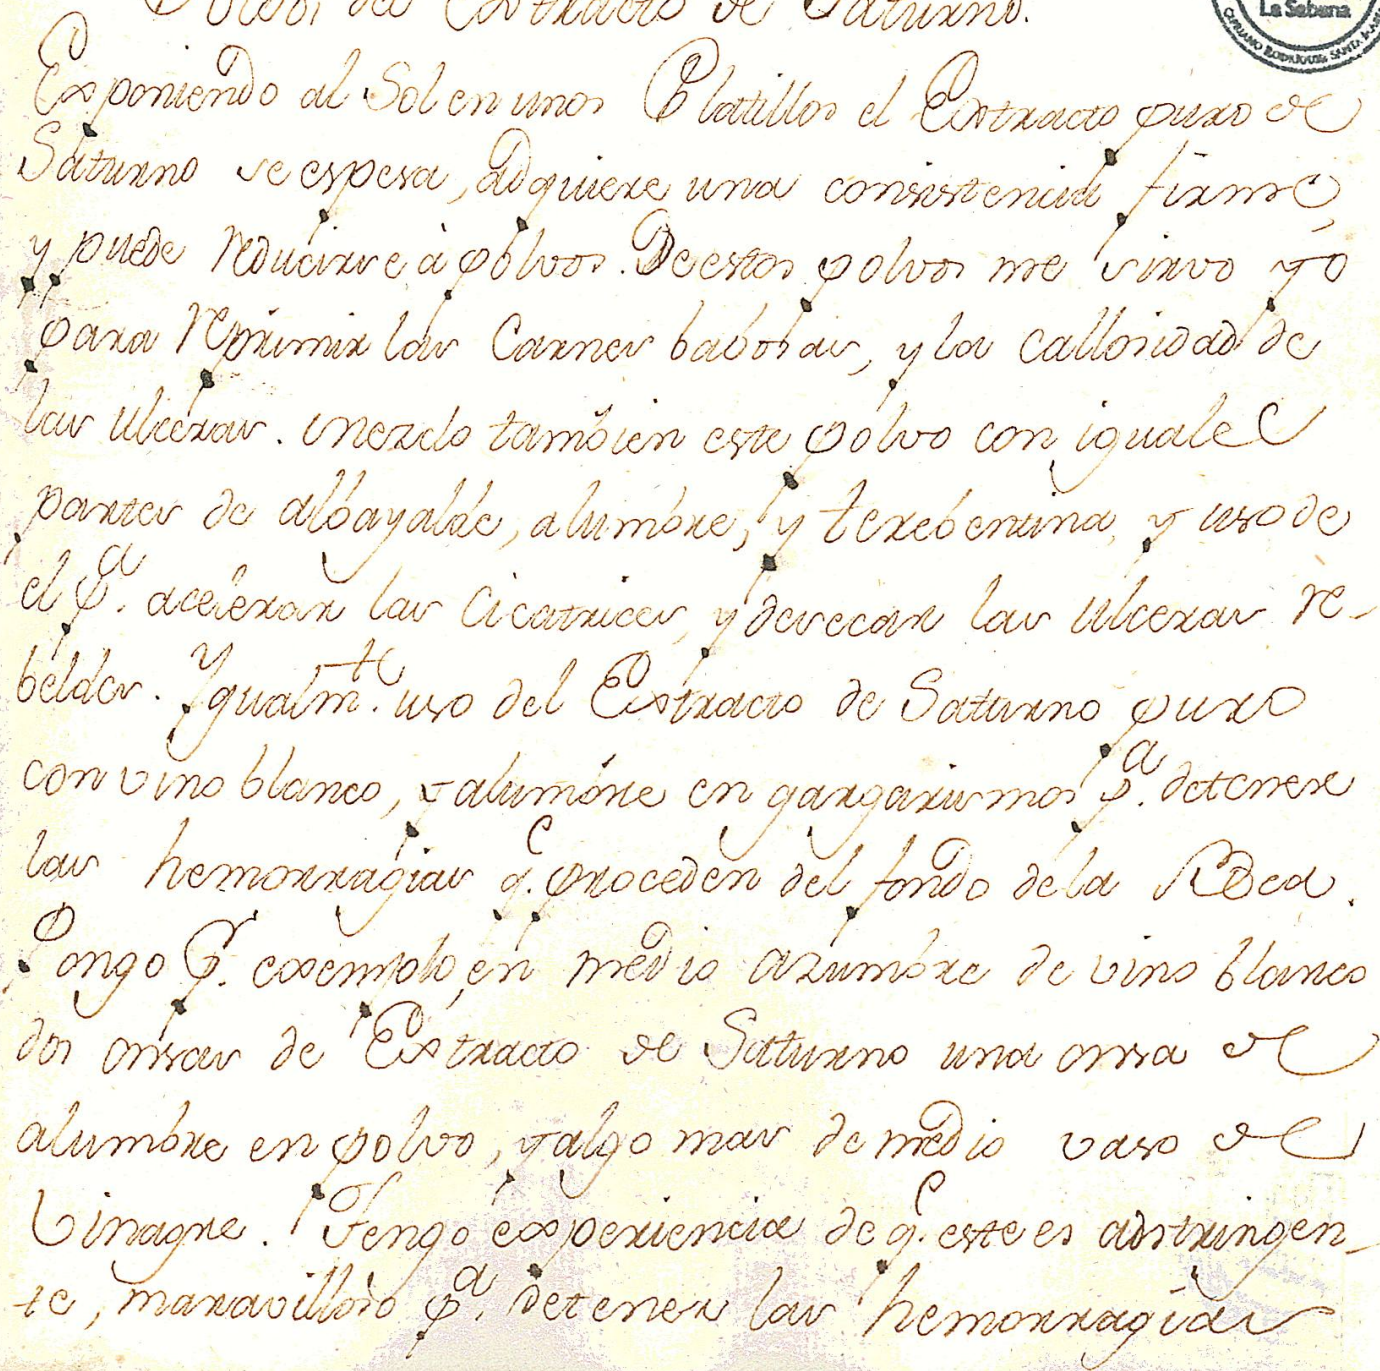 Polvos del Extracto de Saturno.
La Sabana
CIPRIANO RODRIGUEZ SANTA MARIA
Exponiendo al Sol en unos Platillos el Extracto puro de
Saturno se espesa, adquiere una consistencia firme,
y puede reducirse à polvos. De estos polvos me sirvo yo
para reprimir las Carnes babosas, y la callosidad de
las ulceras. mezclo tambien este polvo con iguales
partes de albayalde, alumbre, y terebentina, y uso de
el pa. acelerar las Cicatrices, y desecar las ulceras re-
beldes. Ygualmte. uso del Extracto de Saturno puro
con vino blanco, y alumbre en gargarismos pa. detener
las hemorragias q.e proceden del fondo de la Boca.
Pongo pr. exemplo, en medio azumbre de vino blanco
dos onsas de Extracto de Saturno una onsa de
alumbre en polvo, y algo mas de medio vaso de
Vinagre. Tengo experiencia de q.e este es adstringen-
te, maravilloso pa. detener las hemorragias